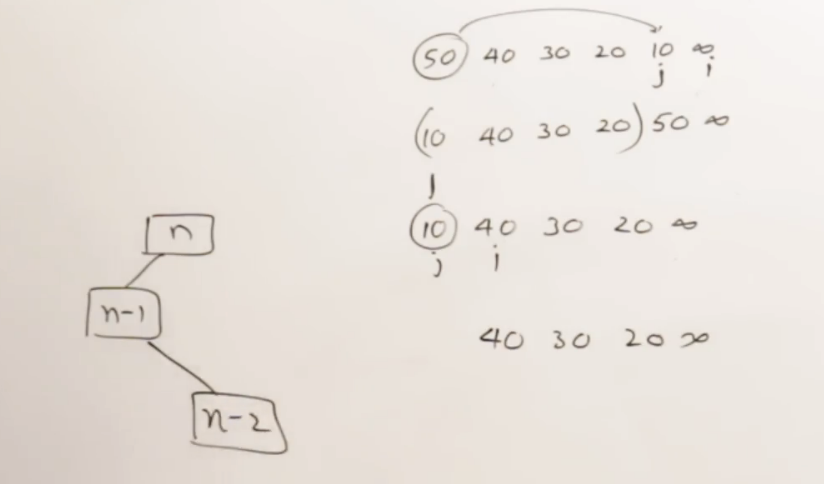 50 40 30 20 10 ∞
j i
(10 40 30 20) 50 ∞
10 40 30 20 ∞
j i
n
n-1
40 30 20 ∞
n-2